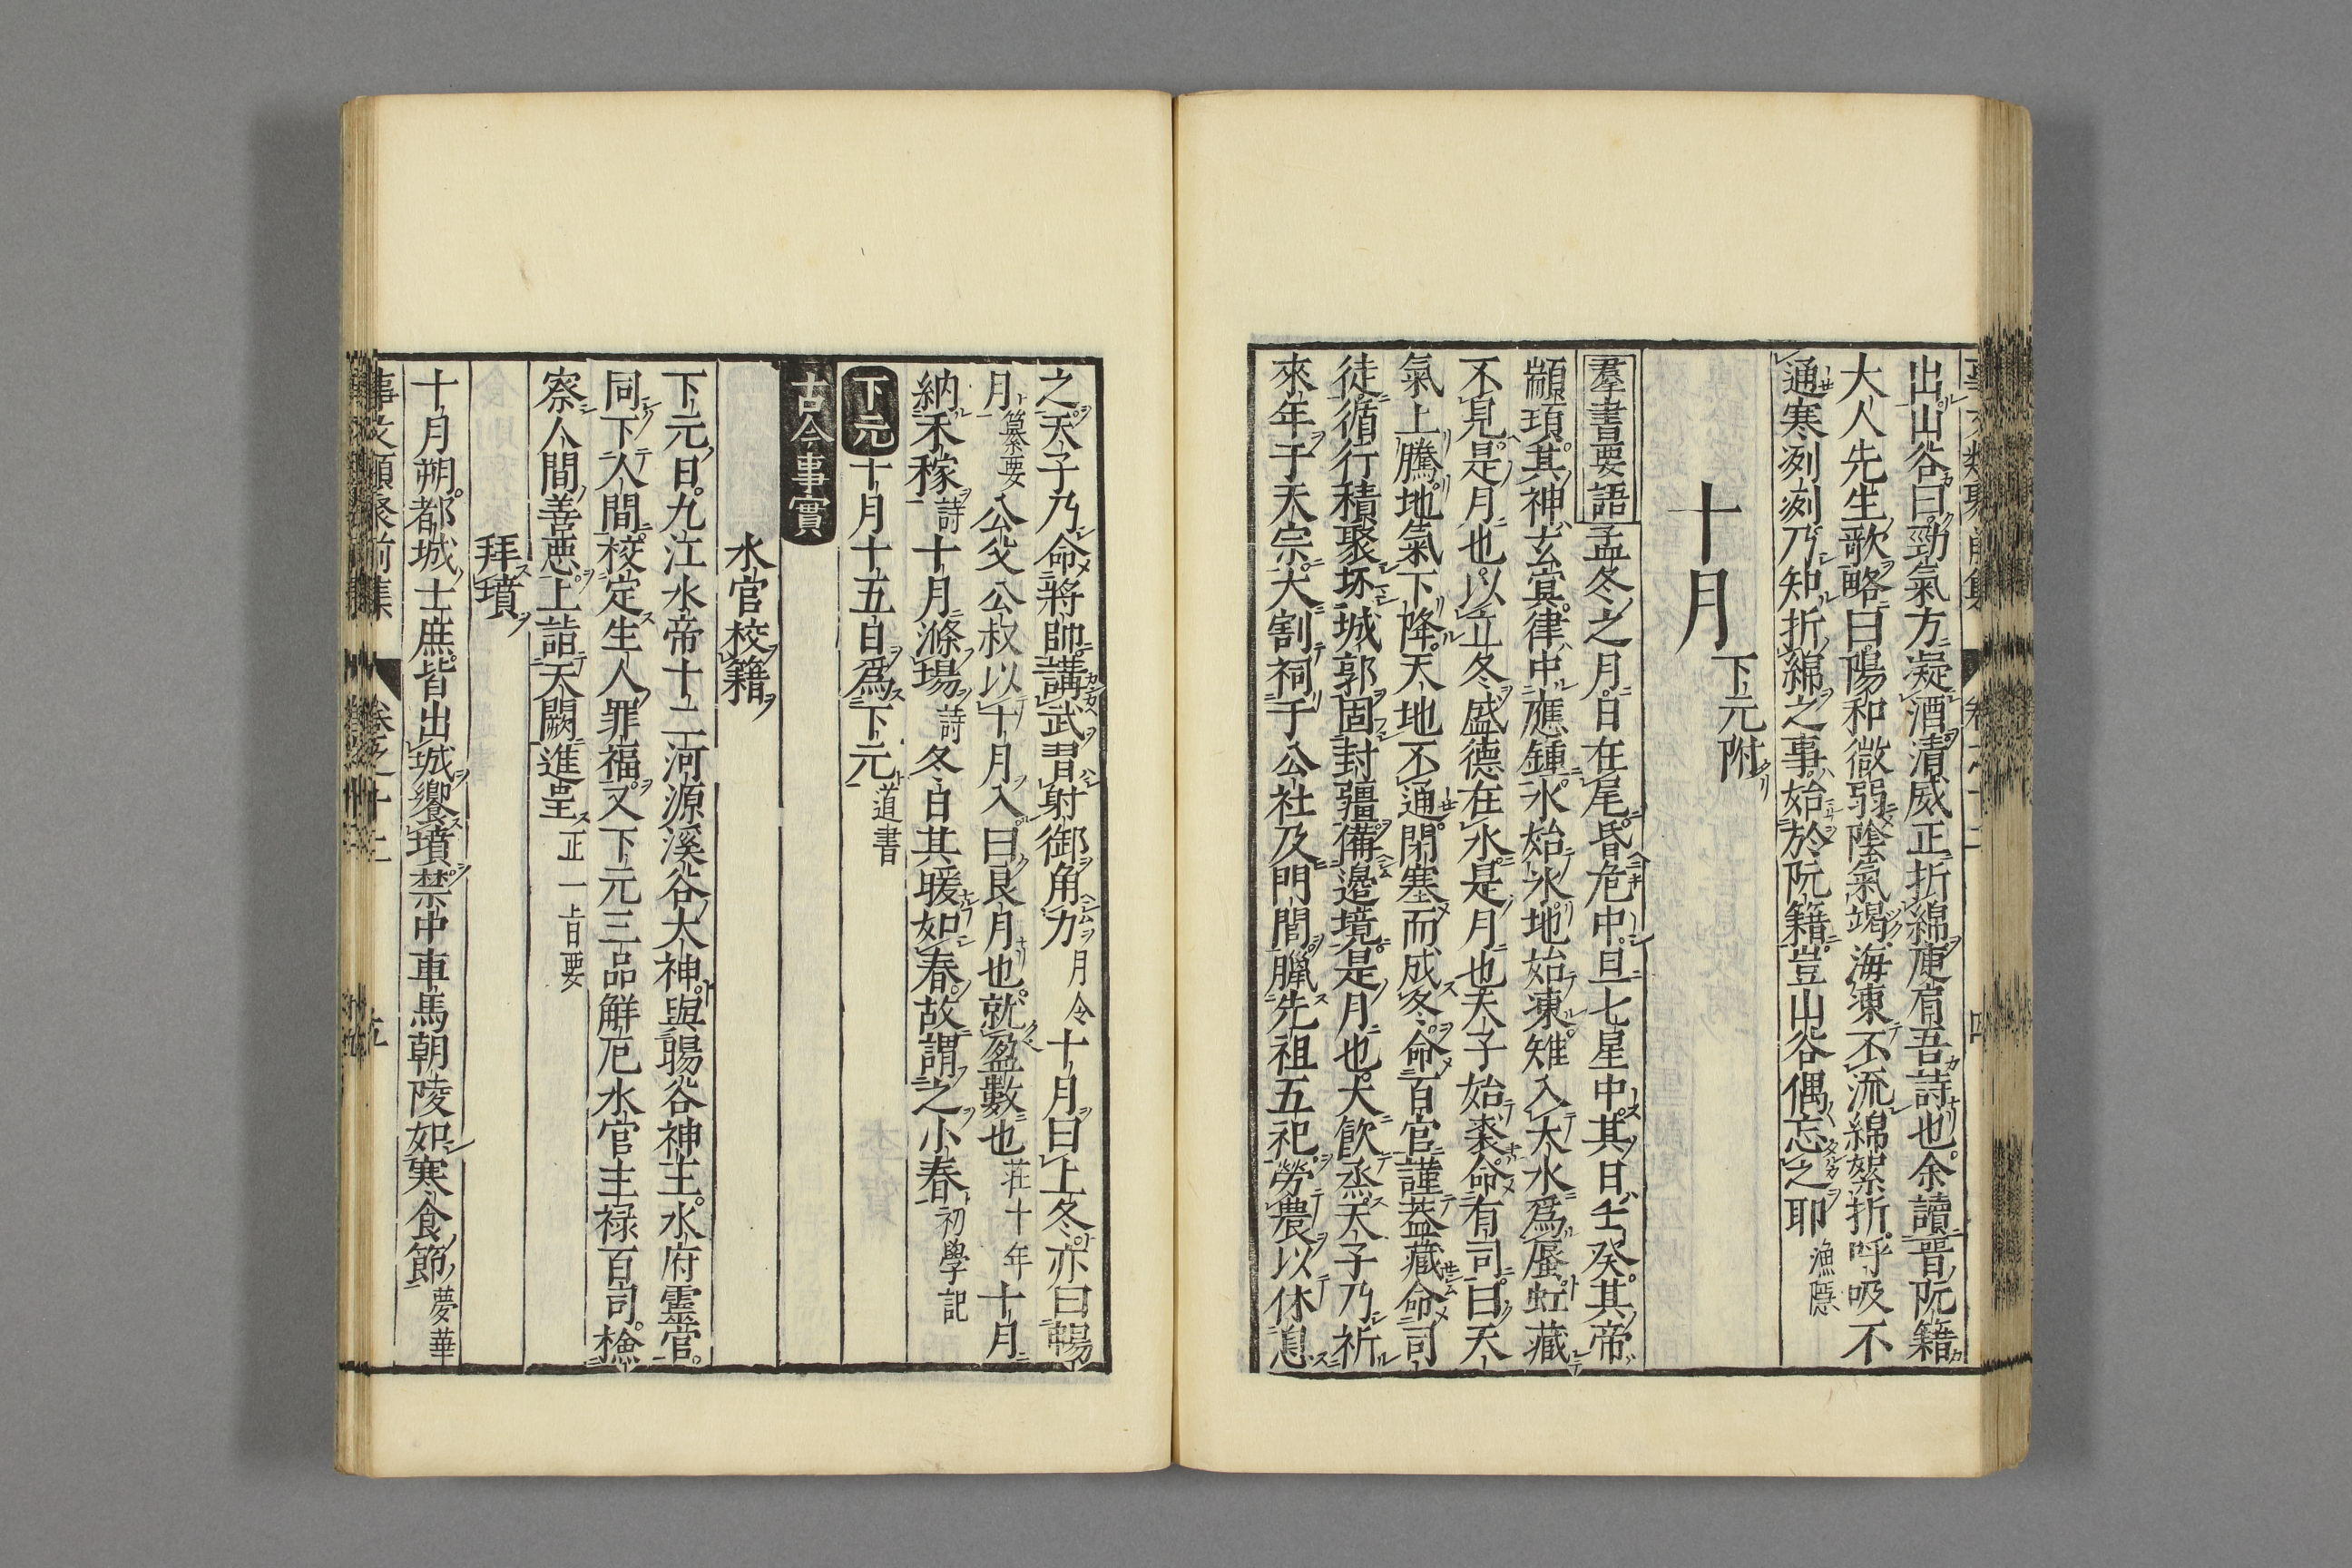 出山谷曰勁氣方凝酒清威正折綿庾肩吾詩也余讀晋阮籍
大人先生歌略曰陽和微弱陰氣竭海凍不流綿絮折呼吸不
通寒冽冽乃知折綿之事始於阮籍豈山谷偶忘之耶 漁隱
十月 下元附
羣書要語 孟冬之月日在尾昏危中旦七星中其日壬癸其帝
顓頊其神玄冥律中應鍾水始氷地始凍雉入大水爲蜃虹藏
不見是月也以立冬盛德在水是月也天子始裘命有司曰天
氣上騰地氣下降天地不通閉塞而成冬命百官謹蓋藏命司
徒循行積聚坏城郭固封疆備邊境是月也大飮烝天子乃祈
來年于天宗大割祠于公社及門閭臘先祖五祀勞農以休息
之天子乃命將帥講武習射御角力 月令 十月曰上冬亦曰暢
月 纂要 公父公叔以十月入曰良月也就盈數也 莊十年 十月
納禾稼 詩 十月滌場 詩 冬日其暖如春故謂之小春 初學記
下元 十月十五日爲下元 道書
古今事實
水官校籍
下元日九江水帝十二河源溪谷大神與暘谷神王水府靈官
同下人間校定生人罪福又下元三品解厄水官主禄百司撿
察人間善惡上詣天闕進呈 正一旨要
拜墳
十月朔都城士庶皆出城饗墳禁中車馬朝陵如寒食節 夢華
事文類聚前集 卷之十二